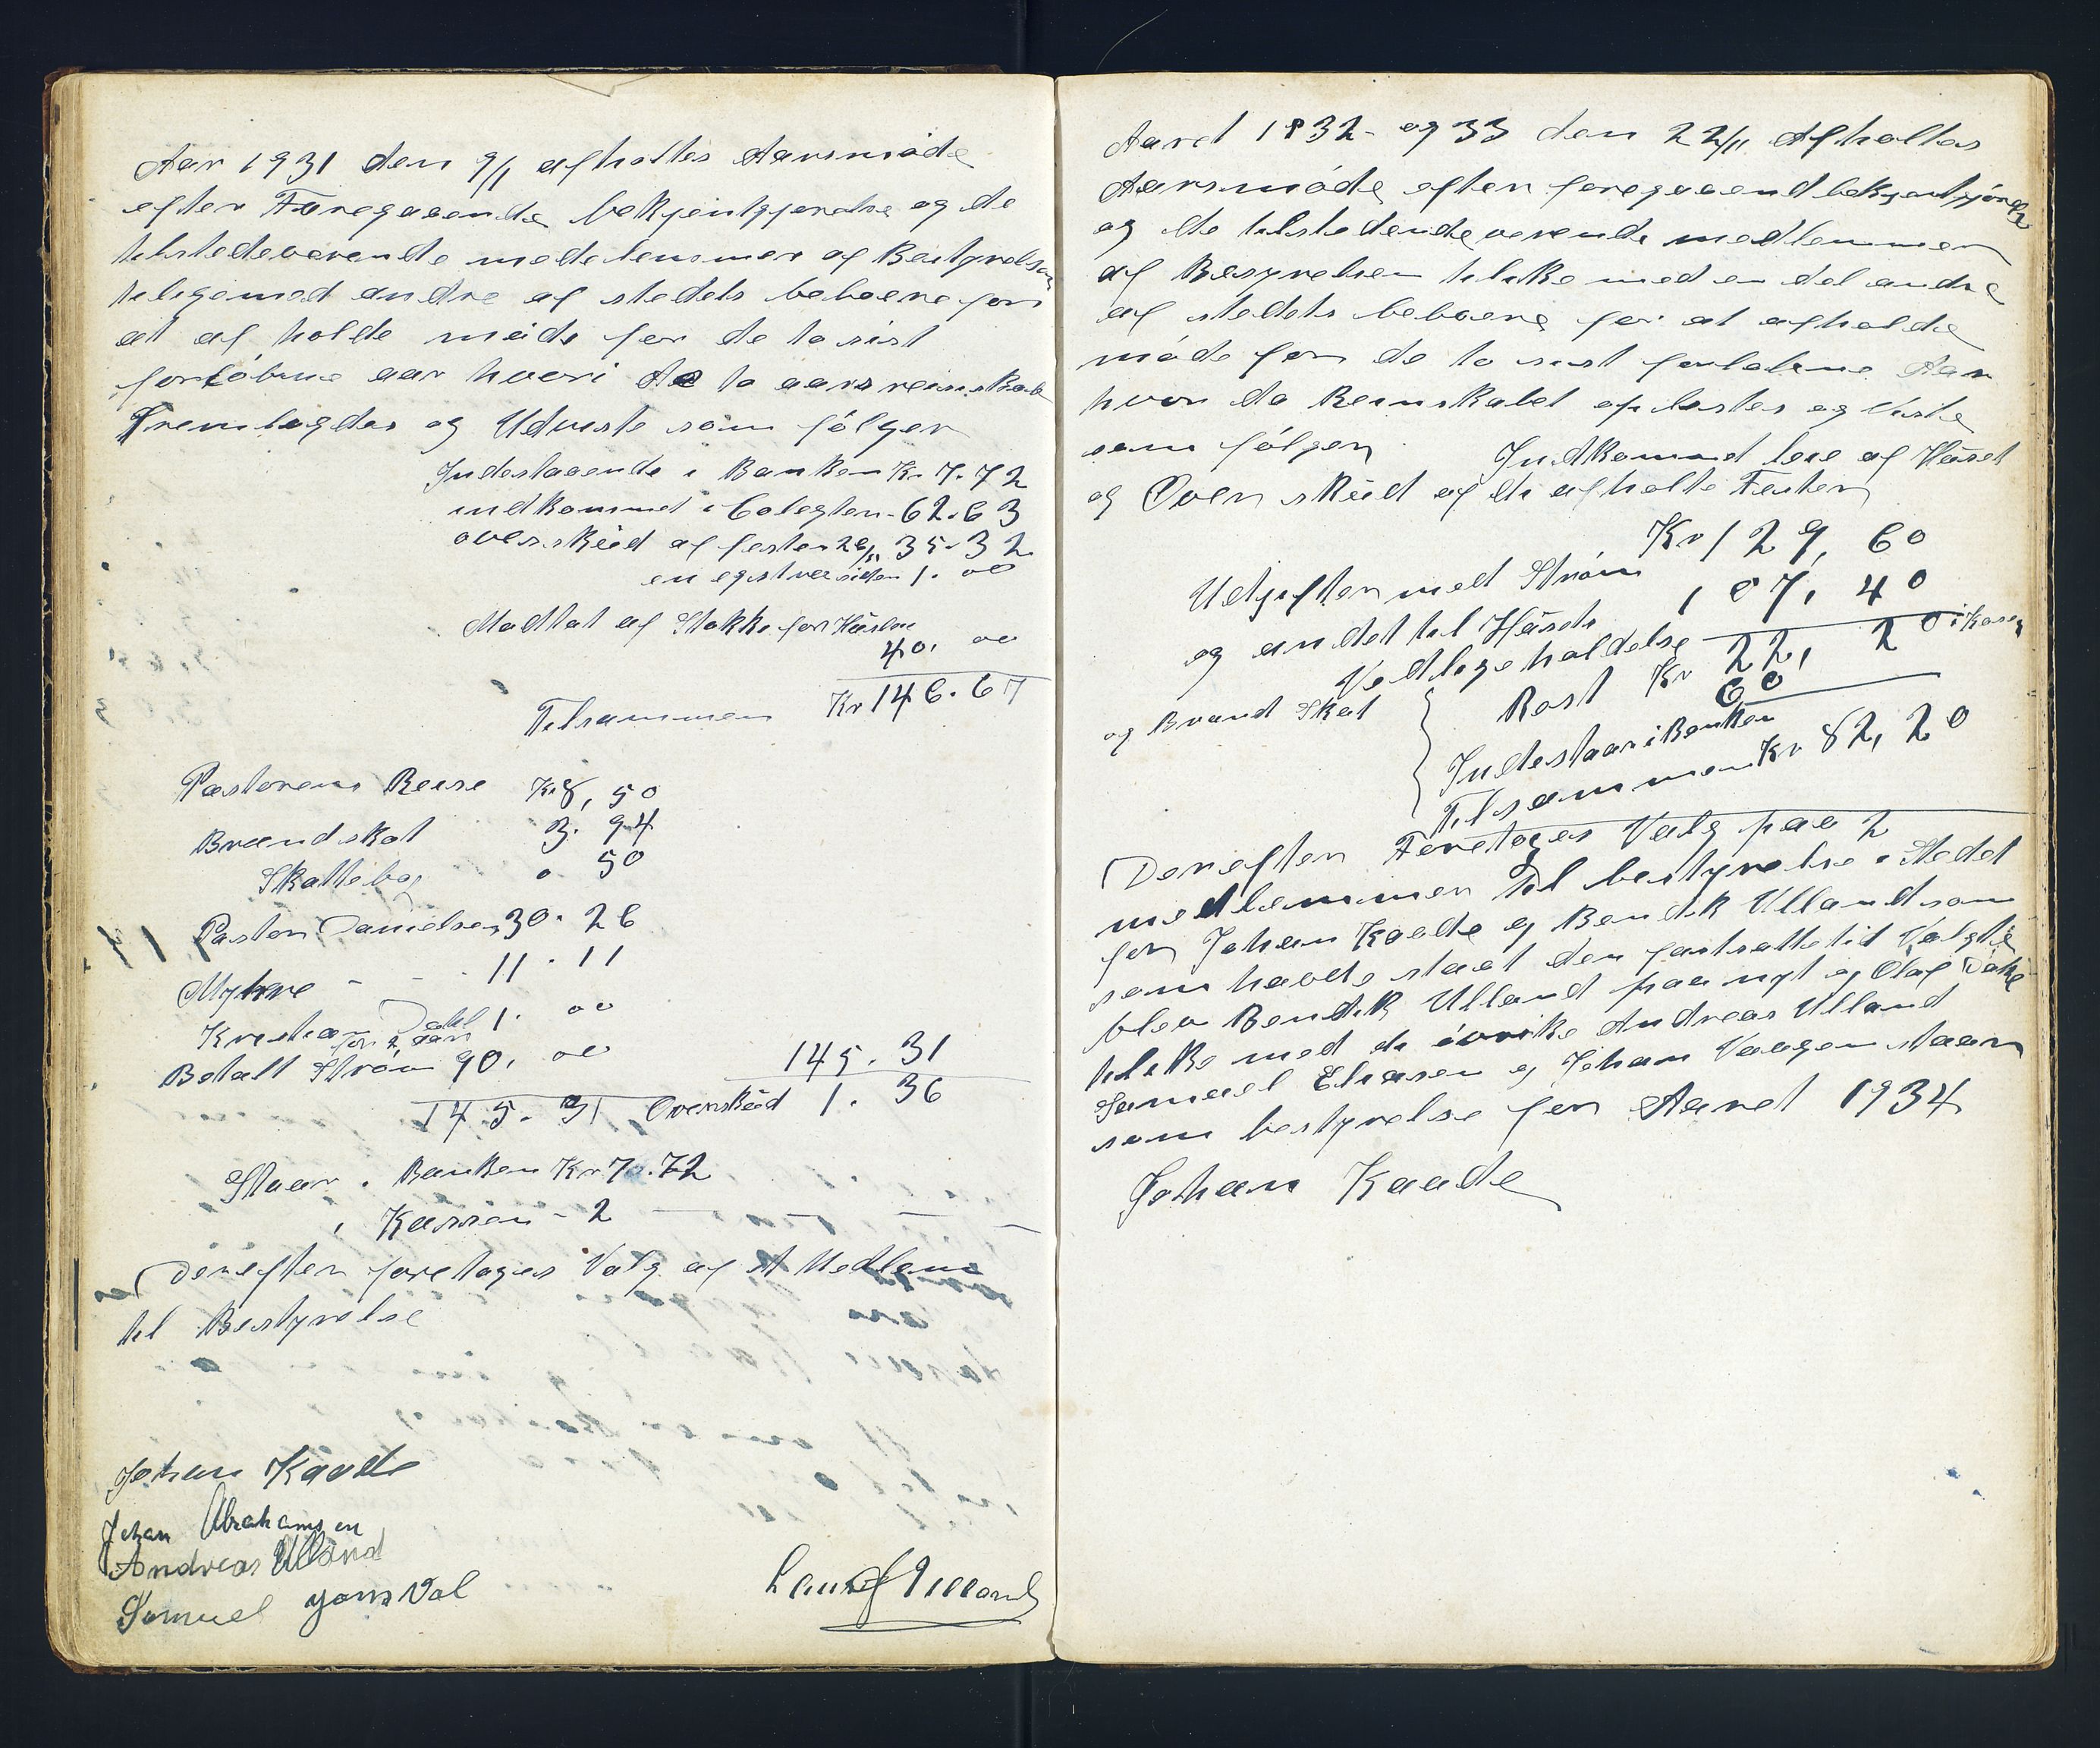 Aar 1931 den 9/1 afholtes Aarsmöde
efter Foregaaende bekjentgjørelse og de
tilstedeverende medelemmer af Bestyrelsen
tiligemed andre af stedets beboere for
at af holde möide for de to sist
forløbne aar hvori de to aars reinskab
Fremlagdes og Udviste som fölger
Indestaaende i Banken Kr. 7.72
indkommet i Colegten - 62.63
overskud af festen 26/12 35.32
en egst 1.00
Modtat af Stokke for Huslee
40.00
Tilsammen Kr 146.67
Pastorens Reise Kr 8,50
Brandskat 3.94
Skattebog 0 50
Pastor Danielsen 30.26
Myhre - - 11.11
Kristian Dahl 1.00
for 2 aar
Betalt Ström 90.00 145.31
145.31 Overskud 1.36
Staar i Banken Kr 7.72
i Kassen - 2 — — — —
Derefter foretoges Valg af et Medlem
til Bestyrelse
Johan Kaade
Johan Abrahamsen
Andreas Ulland
Samuel
Aaret 1932 - og 33 den 22/11 Afholtes
Aarsmöde efter foregaaend bekjentgjörelse
og de tilstedendeverende medlemmer
af Besyrelsen tilike med en del andre
af stedets beboere for at afholde
möde for de to sist forlobne Aar
hvor da Reinskabet oplestes og Viste
som fölger Indkommed leie af Huset
og Overskud af de afholte Fester
Kr 129,60
Udgifter med Ström 107,40
og andet til Husets
Vedligeholdelse
og Brand Skat Rest Kr 22,20 i Kasen
60
Indestaar i Banken
Tilsammen Kr 82,20
Derefter Foretoges Valg paa 2
medlemmer til bestyrelse i Stedet
for Johan Kaade og Bendik Ulland som
som havde staat den fastsatte tid Valgte
blev Bendik Ulland paa nyt og Olaf
tilike med de övrike Andreas Ulland
Samuel Eliasen og Johan Vaagen staar
som bestyrelse for Aaret 1934
Johan Kaade